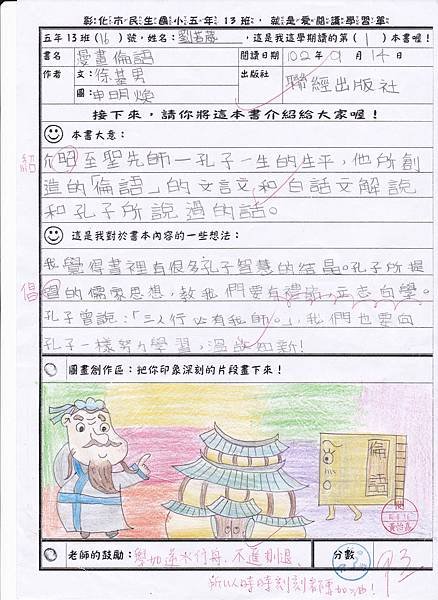 彰化市民生國小五年13班，就是愛閱讀學習單
五年13班(16)號，姓名：劉，這是我這學期讀的第(1)本書喔！
書名 漫畫倫語
閱讀日期 102年9月14日
作者 文:徐基男
圖:申明煥
出版社 聯經出版社
接下來，請你將這本書介紹給大家喔！
本書大意：
紹
介昭至聖先師－孔子一生的生平，他所創
造的「倫語」的文言文和白話文解說
和孔子所說過的話。
這是我對於書本內容的一些想法：
我覺得書裡有很多孔子智慧的結晶。孔子所提
倡
的儒家思想，教我們要有禮節，立志向學。
孔子曾說：「三人行必有我師。」，我們也要向
孔子一樣努力學習，溫故知新！
圖畫創作區：把你印象深刻的片段畫下來！
倫語
老師的鼓勵：學如逆水行舟，不進則退
分數 93
所以時時刻刻都要加油！